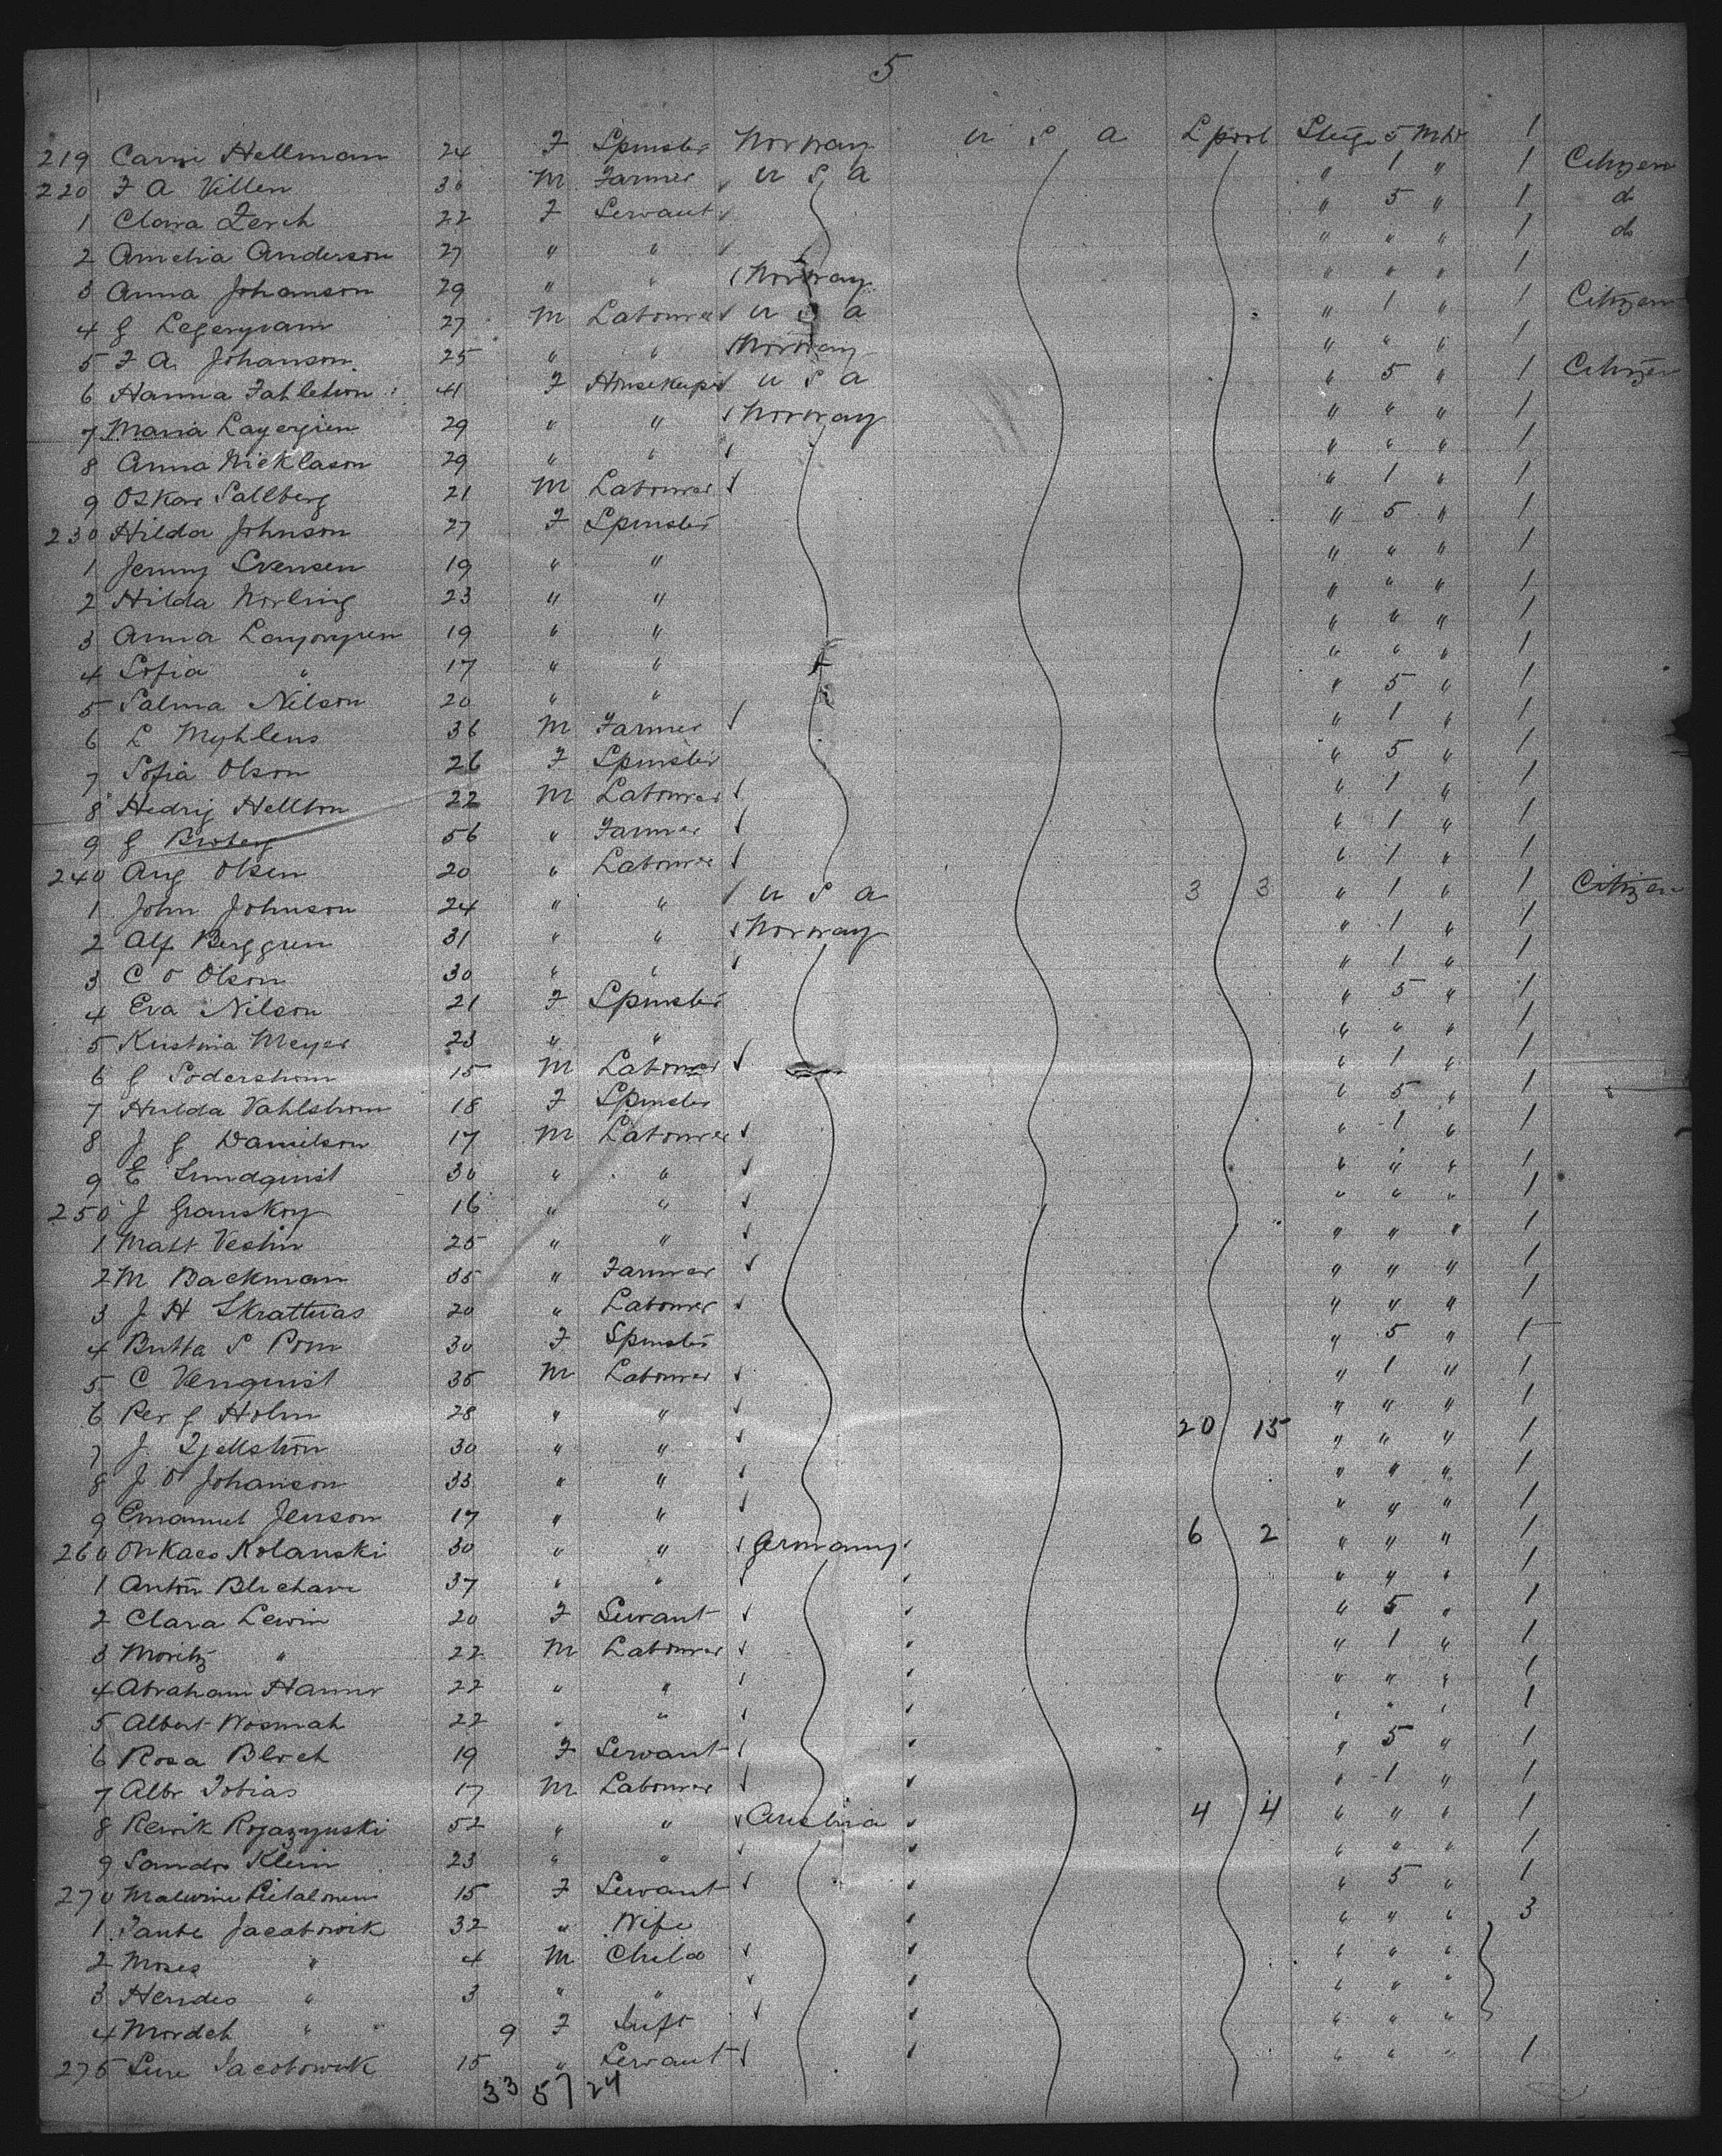 5
219 Carrie Hellman 24 F Spinster Norway U S A L pool Stge 5 Mhd 1
220 F A Villen 30 M Farmer U S A " 1 " 1 Citizen
1 Clara Zerch 22 F Servant " 5 " 1 do
2 Amelia Anderson 27 " " " " " 1 do
3 Anna Johanson 29 " " Norway " " " 1
4 G 27 M Labourer U S A " 1 " 1 Citizen
5 F A Johanson 25 " " Norway " " " 1
6 Hanna 41 F Housekeeper U S A " 5 " 1 Citizen
7 Maria 29 " " Norway " " " 1
8 Anna Nicklason 29 " " " " " 1
9 Oskar Sallberg 21 M Labourer " 1 " 1
230 Hilda Johnson 27 F Spinster " 5 " 1
1 Jenny Svensen 19 " " " " " 1
2 Hilda Norling 23 " " " " " 1
3 Anna 19 " " " " " 1
4 Sofia " 17 " " " " " 1
5 Salma Nilson 20 " " " 5 " 1
6 L Myhlens 36 M Farmer " 1 " 1
7 Sofia Olson 26 F Spinster " 5 " 1
8 Hedrig Hellton 22 M Labourer " 1 " 1
9 G Broberg 56 " Farmer " 1 " 1
240 Aug Olsen 20 " Labourer " 1 " 1
1 John Johnson 24 " " U S A 3 3 " 1 " 1 Citizen
2 Alf Berggren 31 " " Norway " 1 " 1
3 C O Olson 30 " " " 1 " 1
4 Eva Nilson 21 F Spinster " 5 " 1
5 Kristina Meyer 23 " " " " " 1
6 G Soderstrom 15 M Labourer " 1 " 1
7 Hulda Vahlstrom 18 F Spinster " 5 " 1
8 J G Danielson 17 M Labourer " 1 " 1
9 E Lundquist 30 " " " " " 1
250 J Granskog 16 " " " " " 1
1 Matt Vestin 25 " " " " " 1
2 M Backman 35 " Farmer " " " 1
3 J H Skrattias 20 " Labourer " " " 1
4 Britta S Pom 30 F Spinster " 5 " 1
5 C Venquist 35 M Labourer " 1 " 1
6 Per G Holm 28 " " " " " 1
7 J 30 " " 20 15 " " " 1
8 J O Johanson 33 " " " " " 1
9 Emanuel Jenson 17 " " " " " 1
260 Kolanski 30 " " Germany 6 2 " " " 1
1 Anton 37 " " " " " 1
2 Clara Lewin 20 F Servant " 5 " 1
3 Moritz " 22 M Labourer " 1 " 1
4 Abraham Hanner 22 " " " " " 1
5 Albert Wosmah 22 " " " " " 1
6 Rosa Bloch 19 F Servant " 5 " 1
7 Albr Tobias 17 M Labourer " 1 " 1
8 Rewik Rogazynski 52 " " Austria 4 4 " " " 1
9 Sandor Klein 23 " " " " " 1
270 15 F Servant " 5 " 1
1 Taube Jacobowik 32 " Wife " " " 3
2 Moses " 4 M Child " " "
3 Hendes " 3 " " " " "
4 Mordch " 9 F Inft " " "
275 Sure Jacobowik 15 " Servant " " " 1
33 57 24